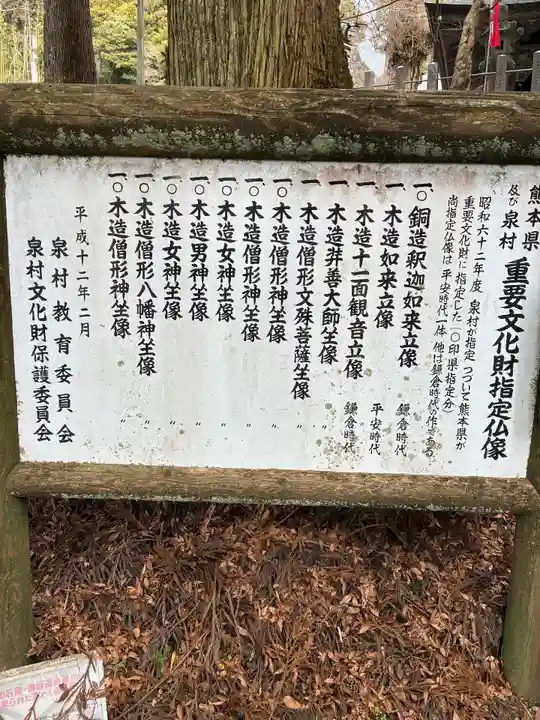 熊本県
及び 泉村 重要文化財指定仏像
昭和六十二年度 泉村が指定 つづいて熊本県が
重要文化財に指定した(〇印県指定分)
尚指定仏像は 平安時代一体 他は鎌倉時代の作である
一〇銅造釈迦如来立像 鎌倉時代
一、木造如来立像 平安時代
一〇木造十一面観音立像 鎌倉時代
一、木造弉善大師坐像 〃
一、木造僧形文殊菩薩坐像 〃
一〇木造僧形神坐像 〃
一〇木造僧形神坐像 〃
一〇木造女神坐像 〃
一〇木造男神坐像 〃
一〇木造女神坐像 〃
一〇木造僧形八幡神坐像 〃
平成十二年二月
泉村教育委員会
泉村文化財保護委員会